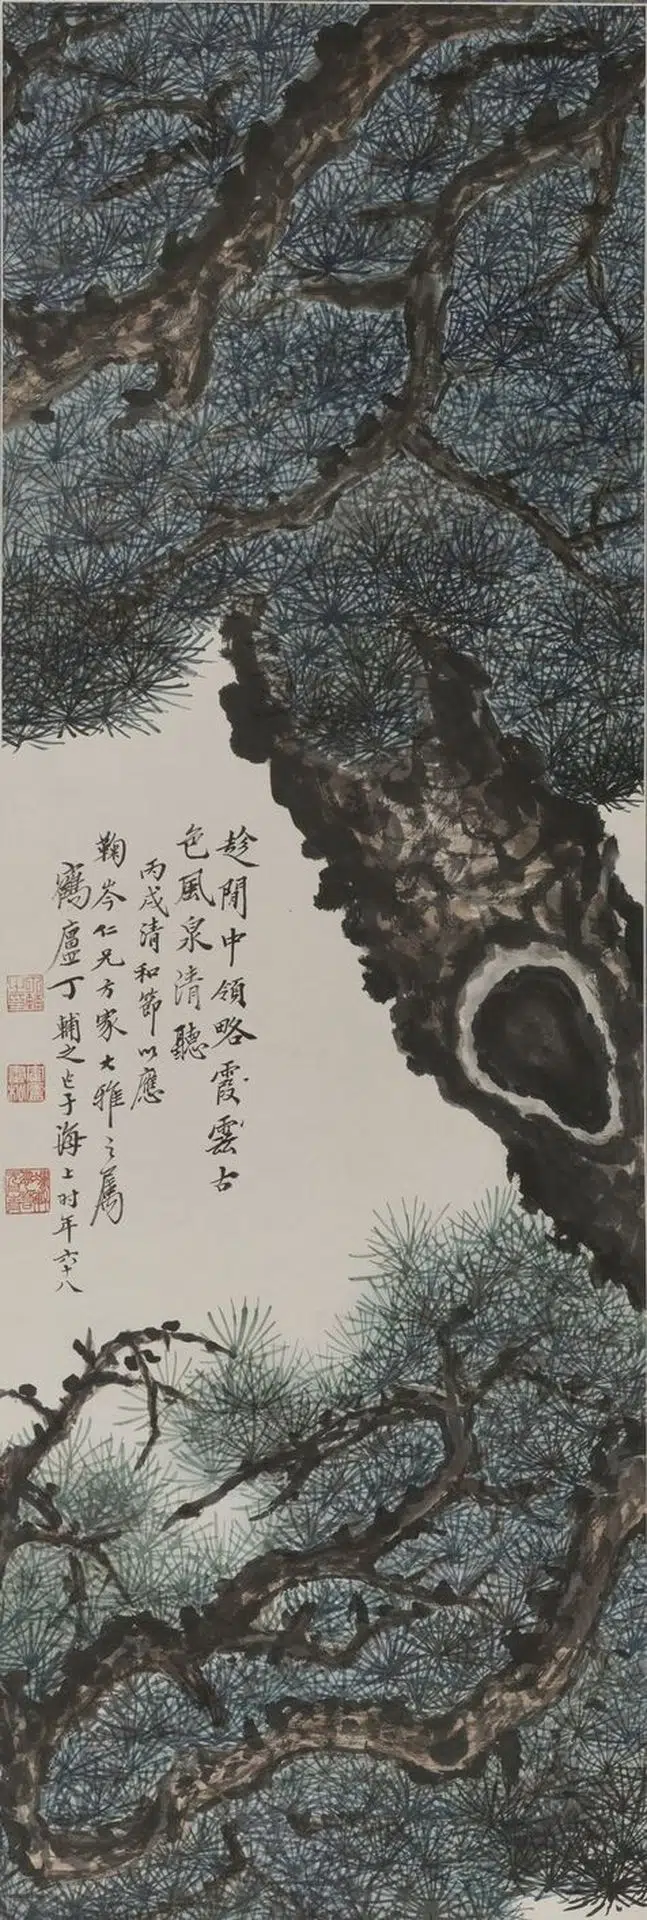 趁閒中領略霞雲古
色風泉清聽
丙戌清和節以應
鞠岑仁兄方家大雅之属
鶴廬丁輔之乍于海上时年六十八